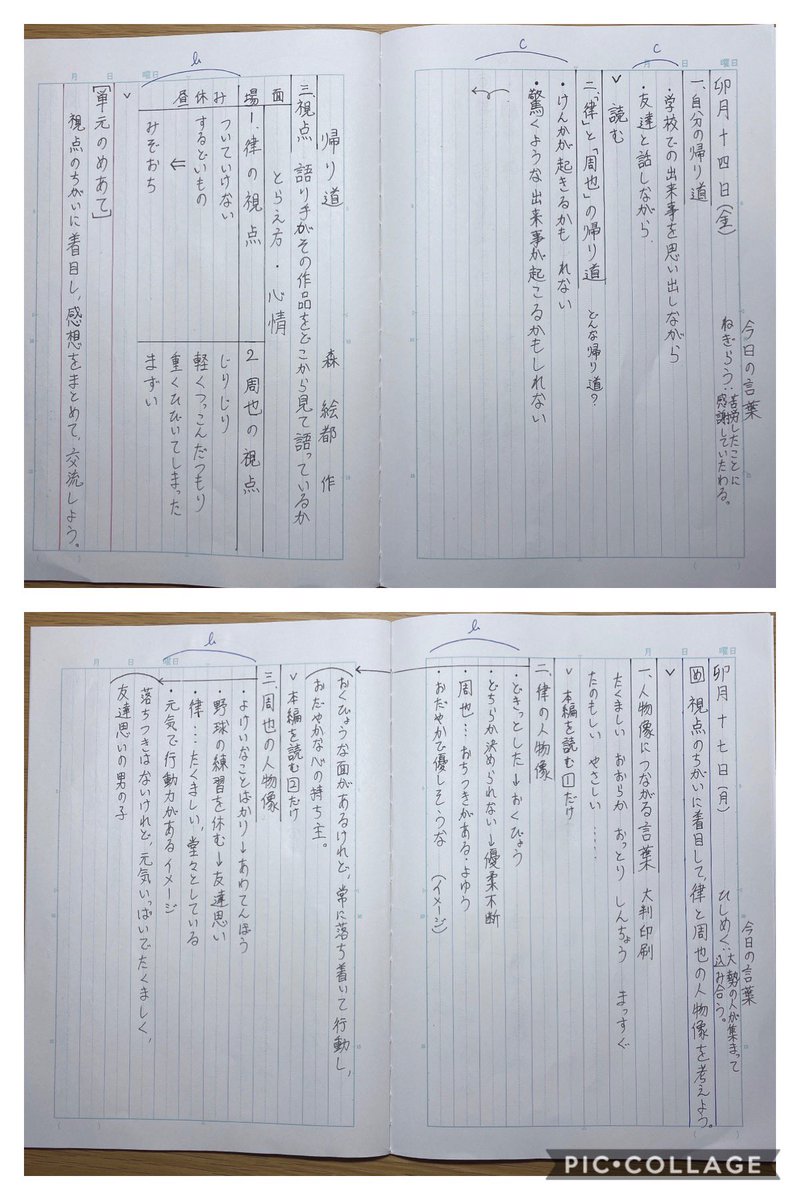 卯月十四日(金)
今日の言葉
ねぎらう…苦労したことに
感謝していたわる。
一、自分の帰り道
・学校での出来事を思い出しながら
・友達と話しながら
読む
二、「律」と「周也」の帰り道 どんな帰り道?
・けんかが起きるかも れない
・驚くような出来事が起こるかもしれない
c
c
帰り道 森 絵都 作
三、視点 語り手がその作品をどこから見て語っているか
b
場面 とらえ方・心情
1、律の視点
2 周也の視点
昼休み
ついていけない
するどいもの
⇐
みぞおち
じりじり
軽くつっこんだつもり
重くひびいてしまった
まずい
[単元のめあて]
視点のちがいに着目し、感想をまとめて、交流しよう。
月 日 曜日
卯月十七日(月)
今日の言葉
ひしめく…大勢の人が集まって
込み合う。
め 視点のちがいに着目して、律と周也の人物像を考えよう。
一、人物像につながる言葉 大判印刷
たくましい おおらか おっとり しんちょう まっすぐ
たのもしい やさしい ……
本編を読む 1だけ
二、律の人物像
・どきっとした→おくびょう
・どちらか決められない→優柔不断
・周也…おちつきがある・よゆう
・おだやかで優しそうな (イメージ)
b
おくびょうな面があるけれど、常に落ち着いて行動し、
おだやかな心の持ち主。
本編を読む 2だけ
三、周也の人物像
・よけいなことばかり→あわてんぼう
・野球の練習を休む→友達思い
・律…たくましい、堂々としている
・元気で行動力があるイメージ
b
落ちつきはないけれど、元気いっぱいでたくましく、
友達思いの男の子
月 日 曜日
PIC•COLLAGE